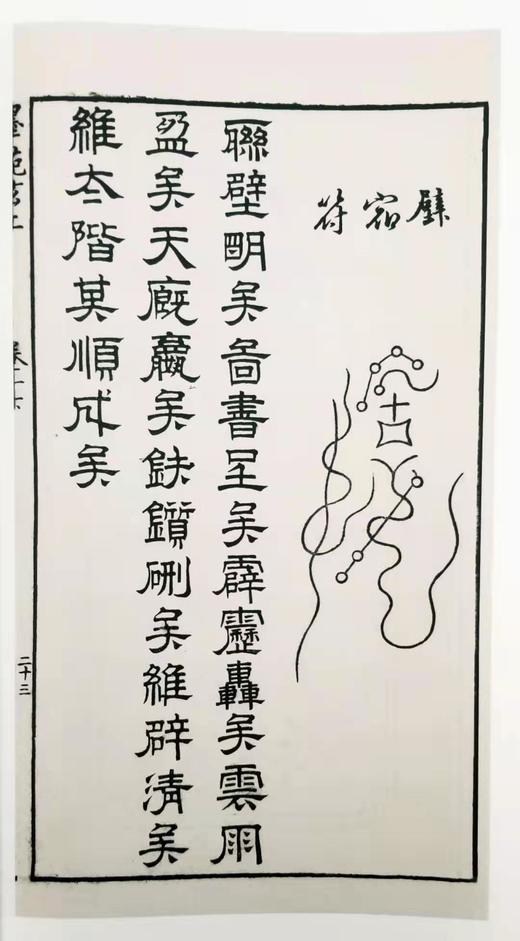 壁宿符
聯壁明矣啚書呈矣霹靂轟矣雲雨
盈矣天廄嬴矣鈇鑕硎矣維辟清矣
維夳階其順成矣
二十三